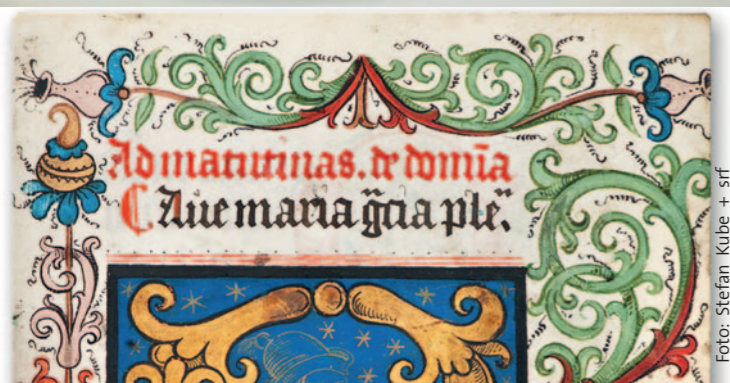 Ad matutinas. de domīa
C Aue maria g̃cia ple᷒.
Foto: Stefan Kube + srf